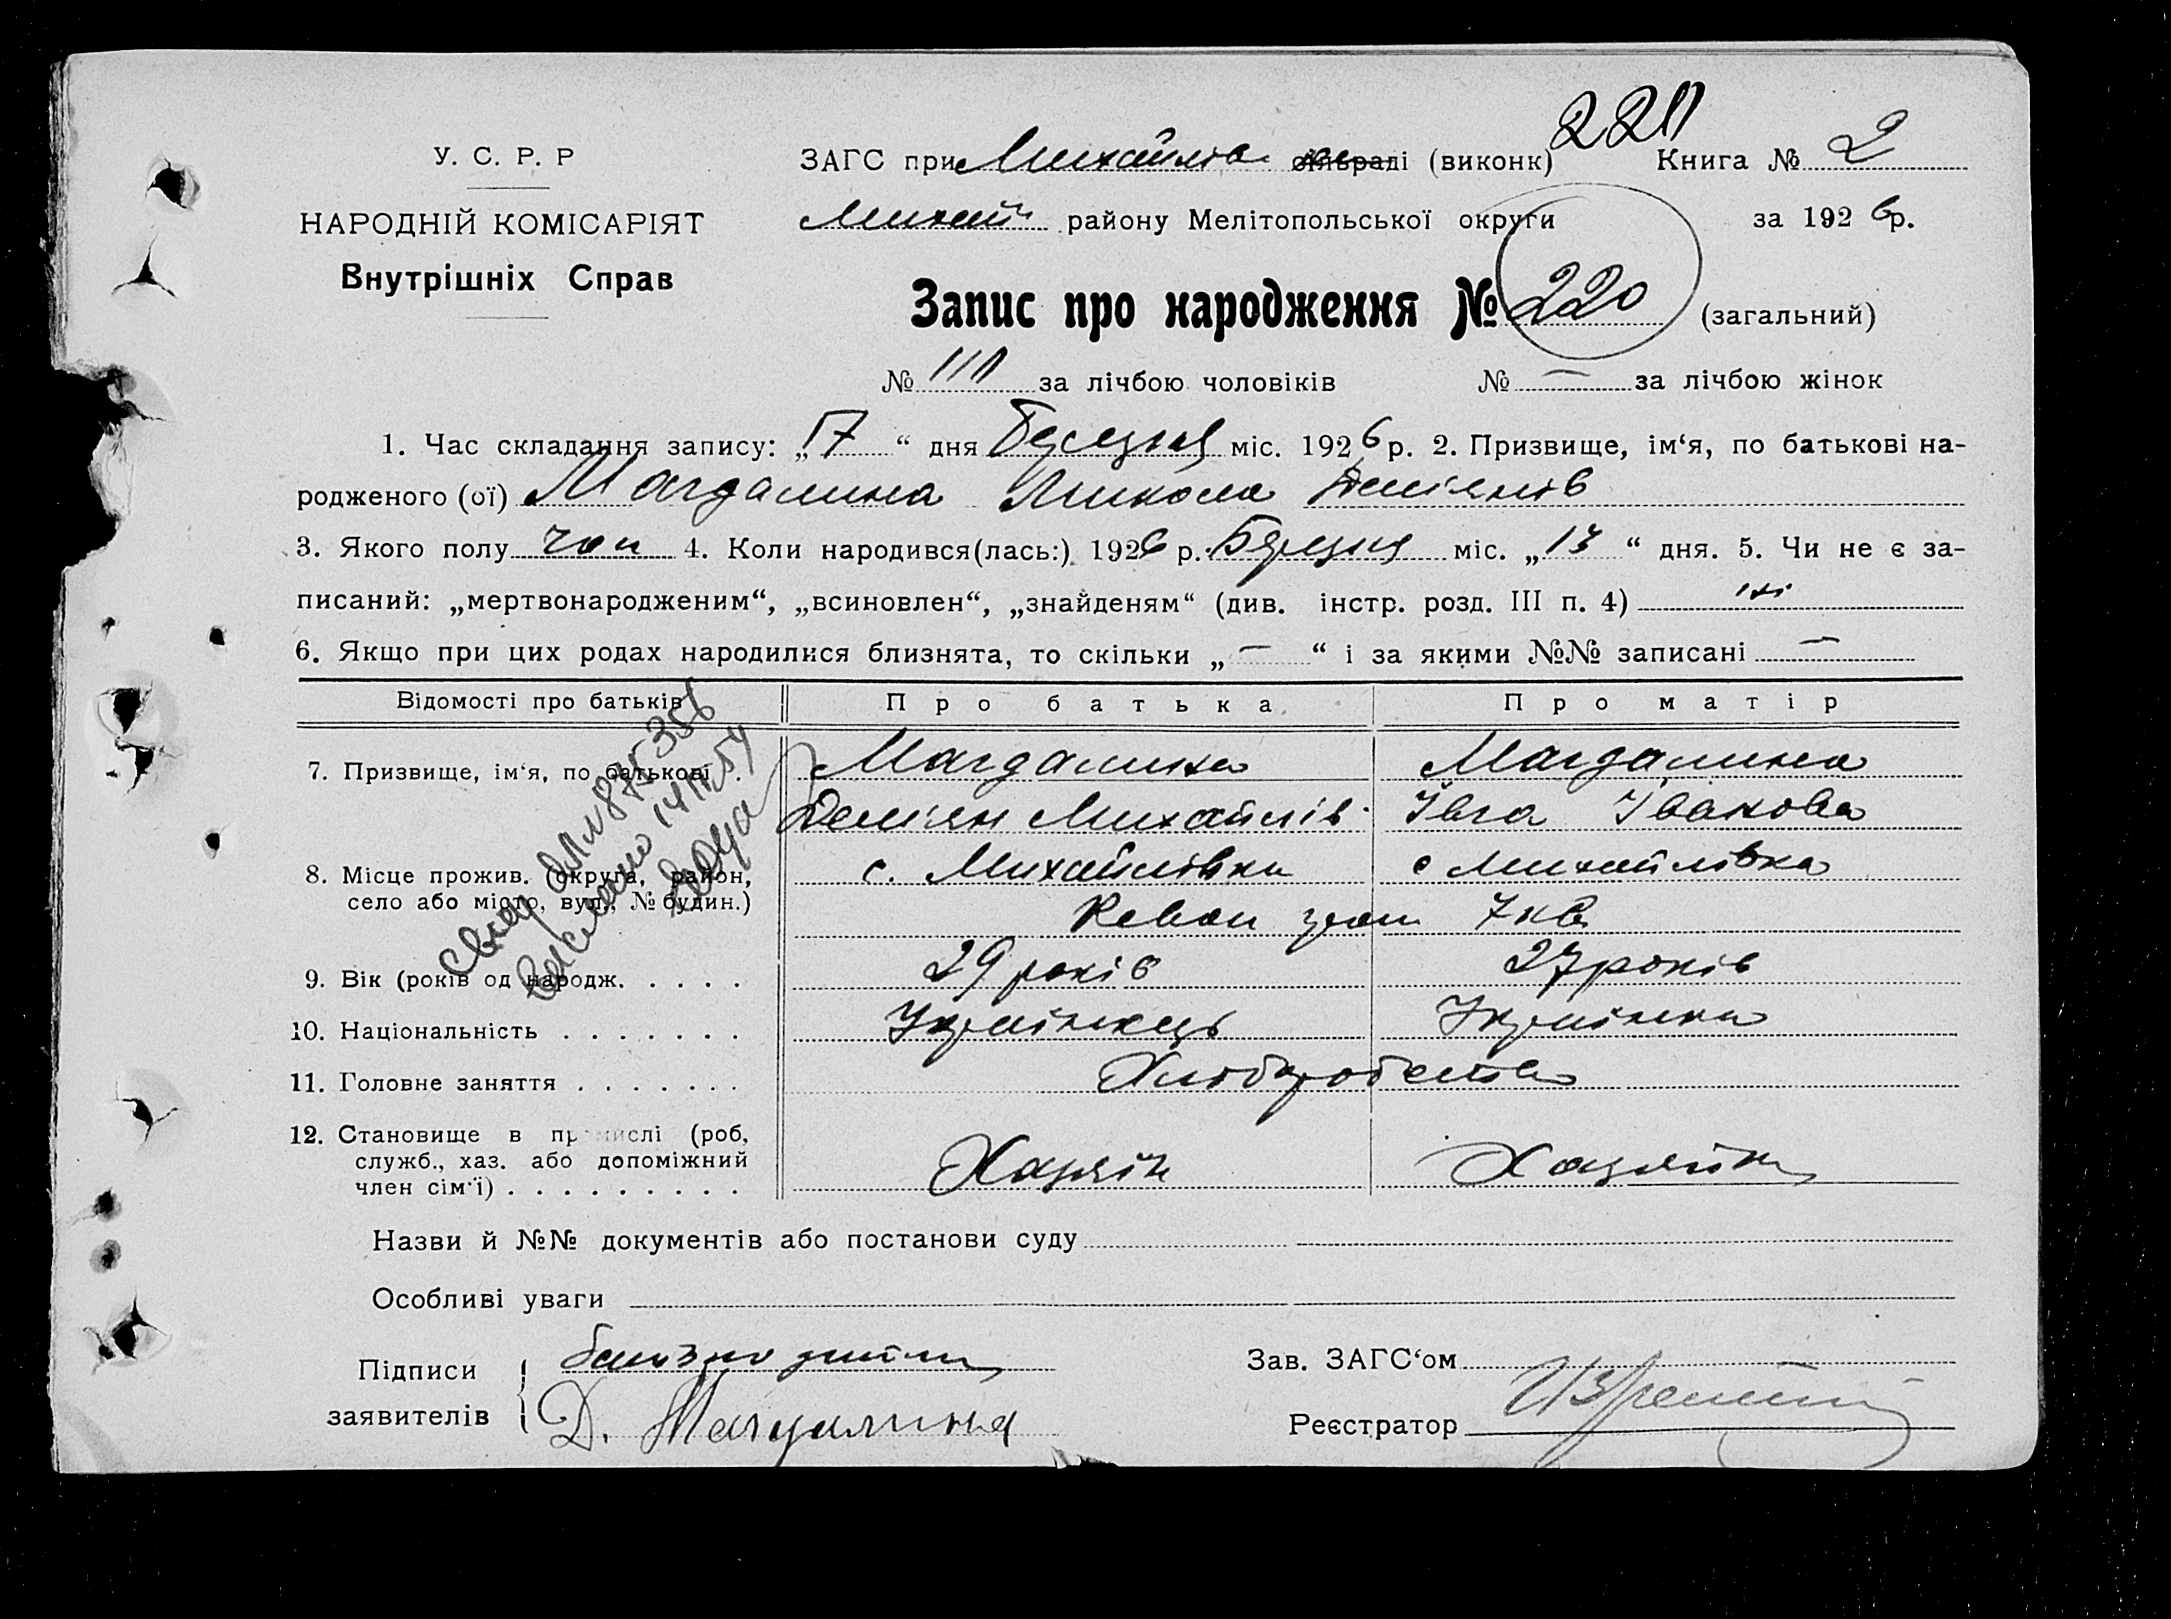 220
У. С. Р. Р
ЗАГС при Михайлів сільраді (виконк) Книга № 2
НАРОДНІЙ КОМІСАРІЯТ
Михай району Мелітопольської округи за 1926 р.
Внутрішніх Справ
Запис про народження № 220 (загальний)
№ 111 за лічбою чоловіків № — за лічбою жінок
1. Час складання запису: „17“ дня Березня міс. 1926 р. 2. Призвище, ім‘я, по батькові на-
родженого (ої) Магдалина Микола Деміянів
3. Якого полу чол 4. Коли народився(лась:) 1926 р. Березня міс. „13“ дня. 5. Чи не є за-
писаний: „мертвонародженим“, „всиновлен“, „знайденям“ (див. інстр. розд. III п. 4) ні
6. Якщо при цих родах народилися близнята, то скільки „—“ і за якими №№ записані —
Відомості про батьків Про батька Про матір
7. Призвище, ім‘я, по батькові . Магдалина Магдалина
Деміян Михайлів Івга Іванова
8. Місце прожив. (округа, район, с. Михайлівки с Михайлівка
село або місто, вул., № будин.) 7 кв
9. Вік (років од народж. . . . . 29 років 27 років
10. Національність . . . . . . . Українець Українка
11. Головне заняття . . . . . . . Хліборобство
12. Становище в промислі (роб,
служб., хаз. або допоміжний Хазяін Хазяйка
член сім‘ї) . . . . . . . . .
875356
выслано
Назви й №№ документів або постанови суду
Особливі уваги
Підписи
Зав. ЗАГС‘ом
заявителів Д. Магдалина
Реєстратор